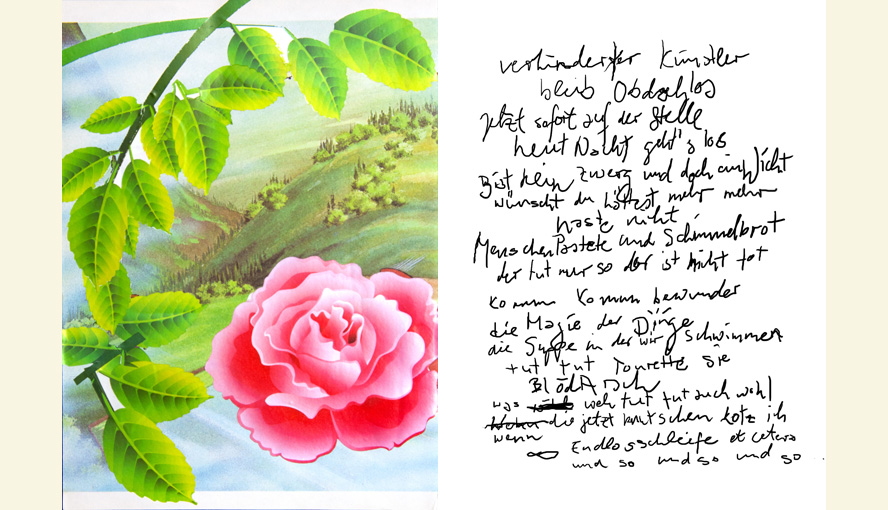 verhinderter Künstler
bleib Obdachlos
jetzt sofort auf der Stelle
heut Nacht geht's los
Bist kein Zwerg und doch ein Wicht
wünscht du hättest mehr mehr
haste nicht
MenschenPastete und Schimmelbrot
der tut nur so der ist nicht tot
komm komm bewunder
die Magie der Dinge
die Suppe in der wir schwimmen
tut tut Tourette Sie
BlödArsch
was weh tut tut auch wohl
die jetzt knutschen kotz ich
wenn
Endlosschleife et cetera
und so und so und so